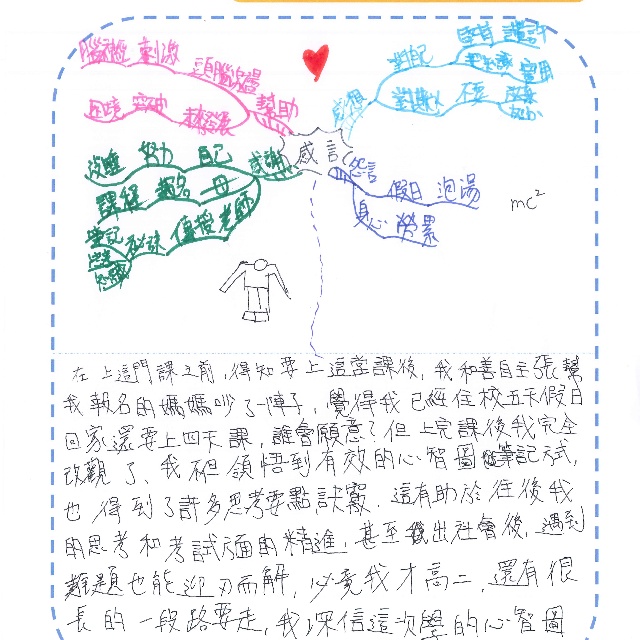 腦神經 刺激 頭腦
困境 幫助
感想 對自己
沒睡 努力 自己 感謝
課程 報名 母
筆記 秘訣 傳授 老師
感言
怨言 假日 泡湯
身心 勞累
mc²
在上這門課之前,得知要上這堂課後,我和善自主張幫
我報名的媽媽吵了一陣子,覺得我已經住校五天假日
回家還要上四天課,誰會願意?但上完課後我完全
改觀了、我不但領悟到有效的心智圖筆記方式,
也得到了許多思考要點訣竅.這有助於往後我
的思考和考試方面的精進,甚至我出社會後,遇到
難題也能迎刃而解,必竟我才高二,還有很
長的一段路要走,我深信這次學的心智圖